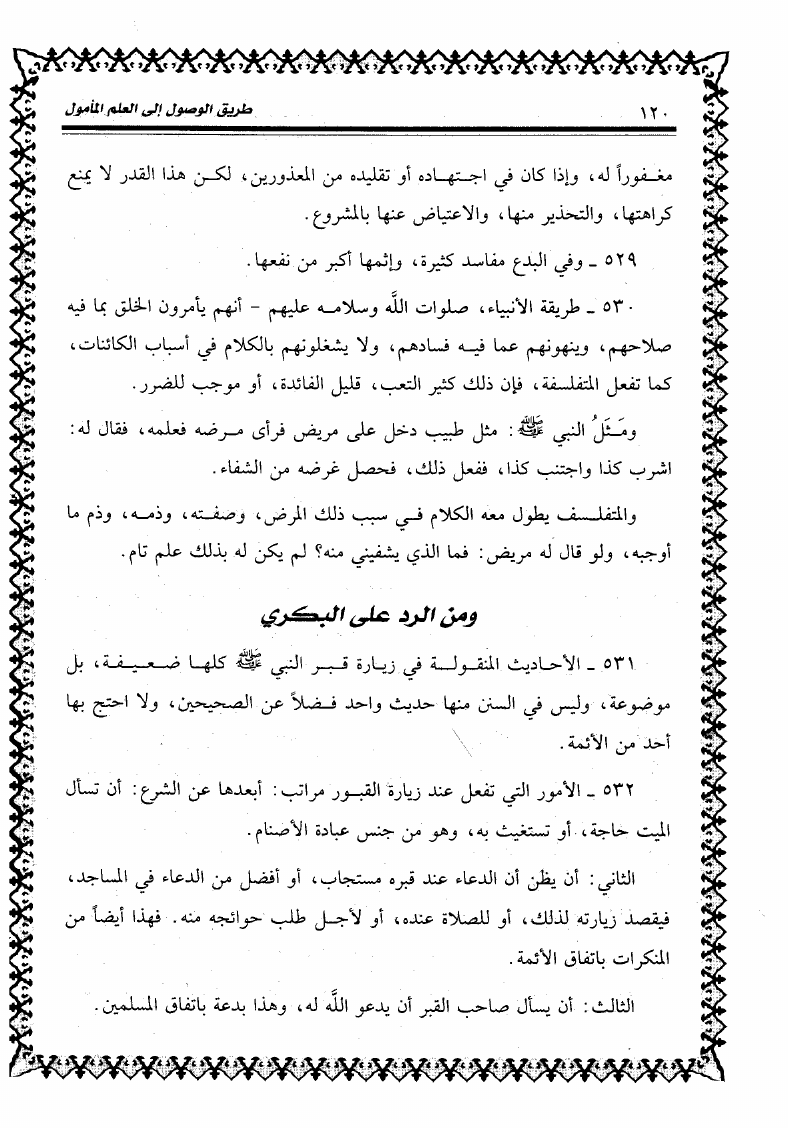 ١٢٠ طريق الوصول إلى العلم المأمول
مغفوراً له، وإذا كان في اجتهاده أو تقليده من المعذورين، لكن هذا القدر لا يمنع
كراهتها، والتحذير منها، والاعتياض عنها بالمشروع.
٥٢٩ ـ وفي البدع مفاسد كثيرة، وإثمها أكبر من نفعها.
٥٣٠ ـ طريقة الأنبياء، صلوات اللَّه وسلامه عليهم - أنهم يأمرون الخلق بما فيه
صلاحهم، وينهونهم عما فيه فسادهم، ولا يشغلونهم بالكلام في أسباب الكائنات،
كما تفعل المتفلسفة، فإن ذلك كثير التعب، قليل الفائدة، أو موجب للضرر.
ومَثَلُ النبي ﷺ: مثل طبيب دخل على مريض فرأى مرضه فعلمه، فقال له:
اشرب كذا واجتنب كذا، ففعل ذلك، فحصل غرضه من الشفاء.
والمتفلسف يطول معه الكلام في سبب ذلك المرض، وصفته، وذمه، وذم ما
أوجبه، ولو قال له مريض: فما الذي يشفيني منه؟ لم يكن له بذلك علم تام.
ومن الرد على البكري
٥٣١ ـ الأحاديث المنقولة في زيارة قبر النبي ﷺ كلها ضعيفة، بل
موضوعة، وليس في السنن منها حديث واحد فضلاً عن الصحيحين، ولا احتج بها
أحد من الأئمة.
٥٣٢ ـ الأمور التي تفعل عند زيارة القبور مراتب: أبعدها عن الشرع: أن تسأل
الميت حاجة، أو تستغيث به، وهو من جنس عبادة الأصنام.
الثاني: أن يظن أن الدعاء عند قبره مستجاب، أو أفضل من الدعاء في المساجد،
فيقصد زيارته لذلك، أو للصلاة عنده، أو لأجل طلب حوائجه منه. فهذا أيضاً من
المنكرات باتفاق الأئمة.
الثالث: أن يسأل صاحب القبر أن يدعو اللَّه له، وهذا بدعة باتفاق المسلمين.